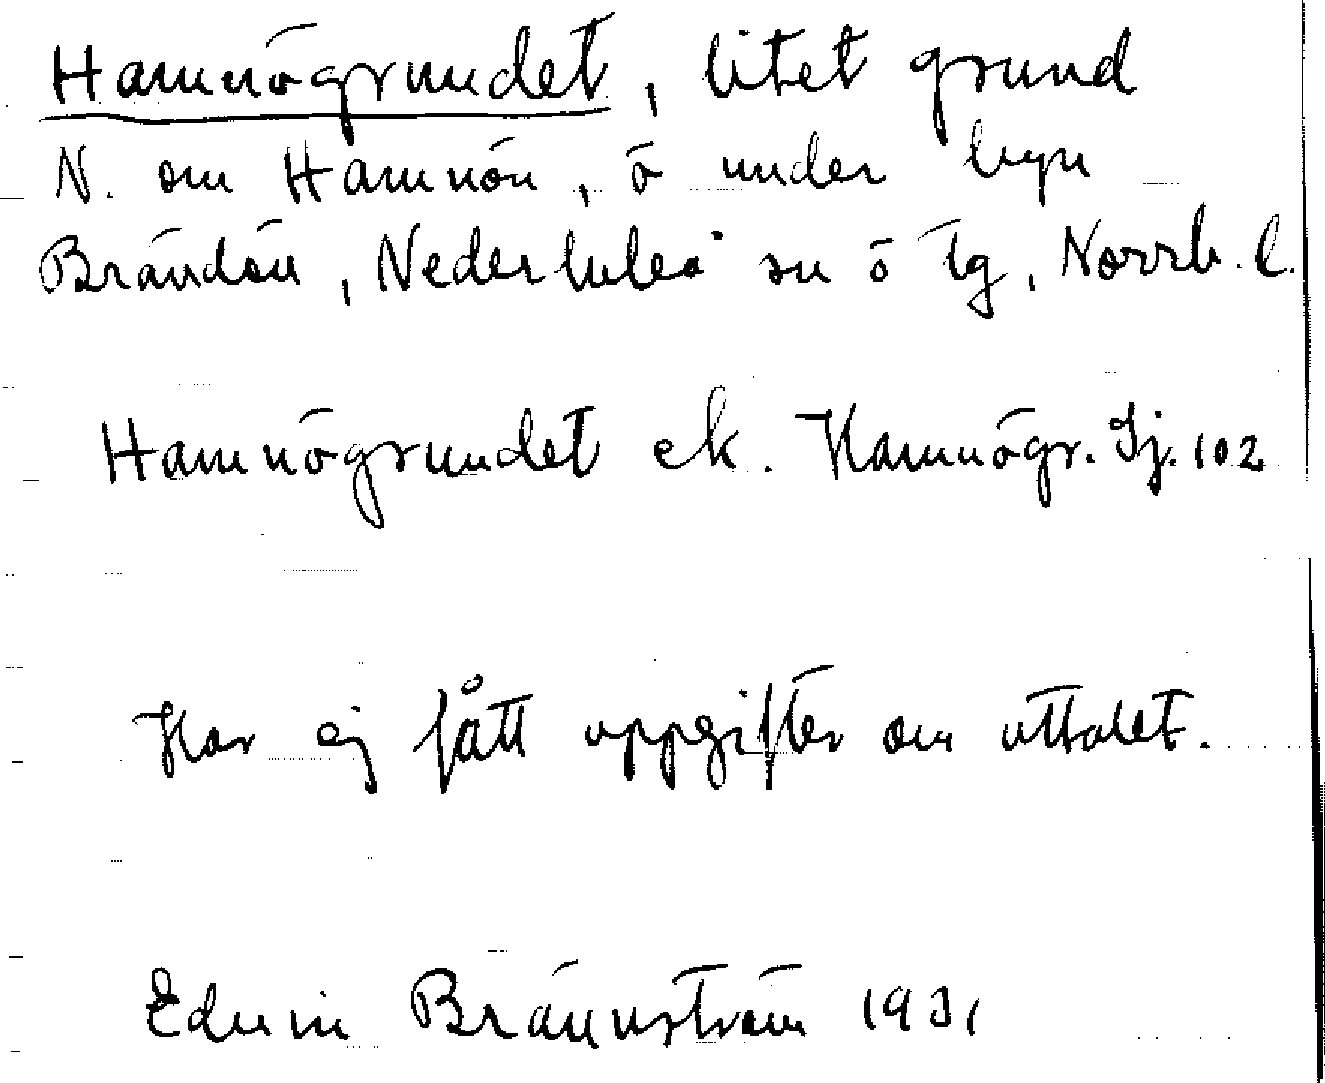 Hamnögrundet, litet grund
N. om Hamnön, ö under byn
Brändön, Nederluleå sn ö tg, Norrb. l.
Hamnögrundet ek. Hamnögr. Sj. 102
Har ej fått uppgifter om uttalet.
Edvin Brännström 1931